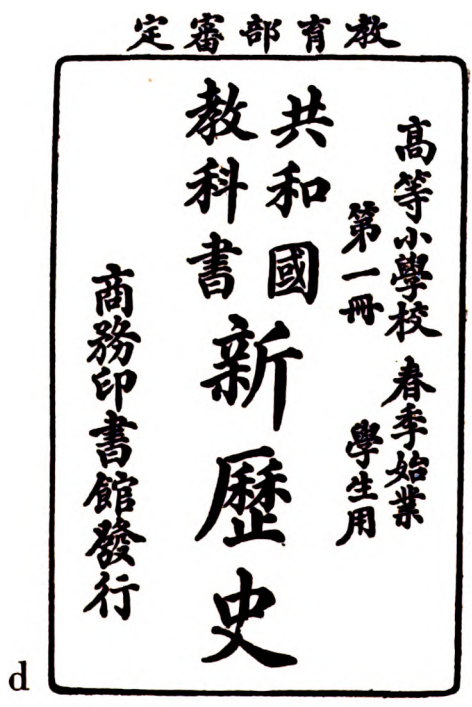 教育部審定
高等小學校 春季始業
第一冊 學生用
共和國
教科書
新歷史
商務印書館發行
d